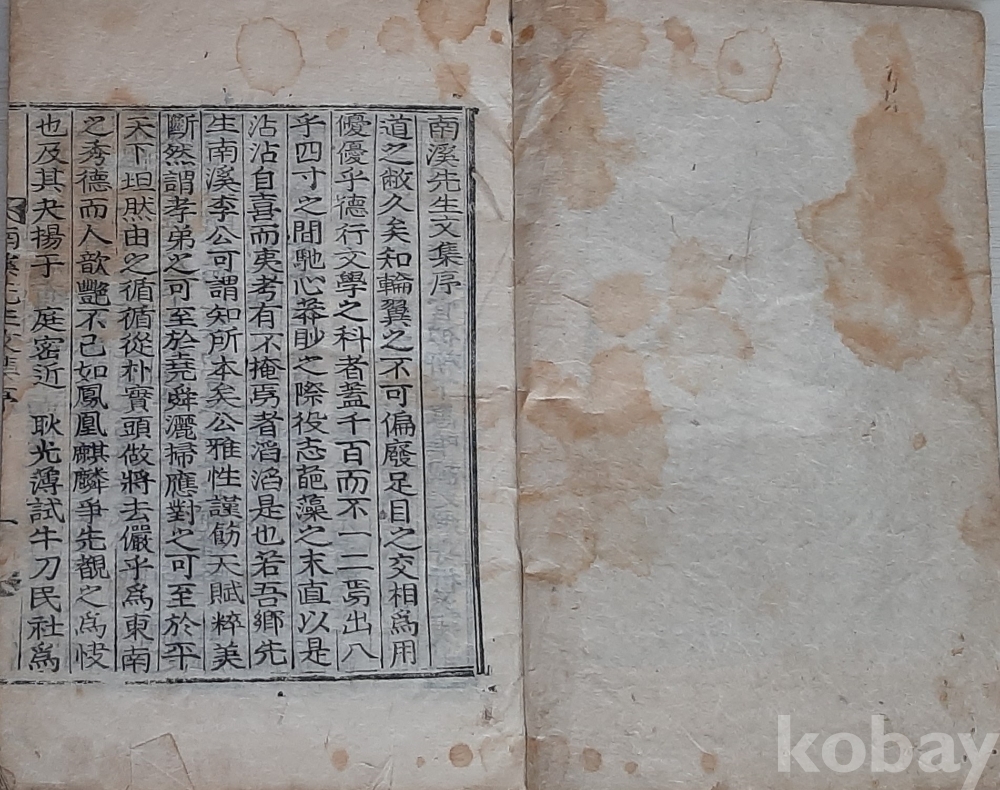 南溪先生文集序
道之敝久矣知輪翼之不可偏廢足目之交相爲用
優優乎德行文學之科者蓋千百而不一二焉出八
乎四寸之間馳心莽眇之際役志葩藻之末直以是
沾沾自喜而夷考有不掩焉者滔滔是也若吾鄉先
生南溪李公可謂知所本矣公雅性謹飭天賦粹美
斷然謂孝弟之可至於堯舜灑掃應對之可至於平
天下坦然由之循循從朴實頭做將去儼乎爲東南
之秀德而人歆艷不已如鳳凰麒麟爭先覩之爲快
也及其夬揚于 庭密近 耿光薄試牛刀民社爲
南溪先生文集序 一
kobay